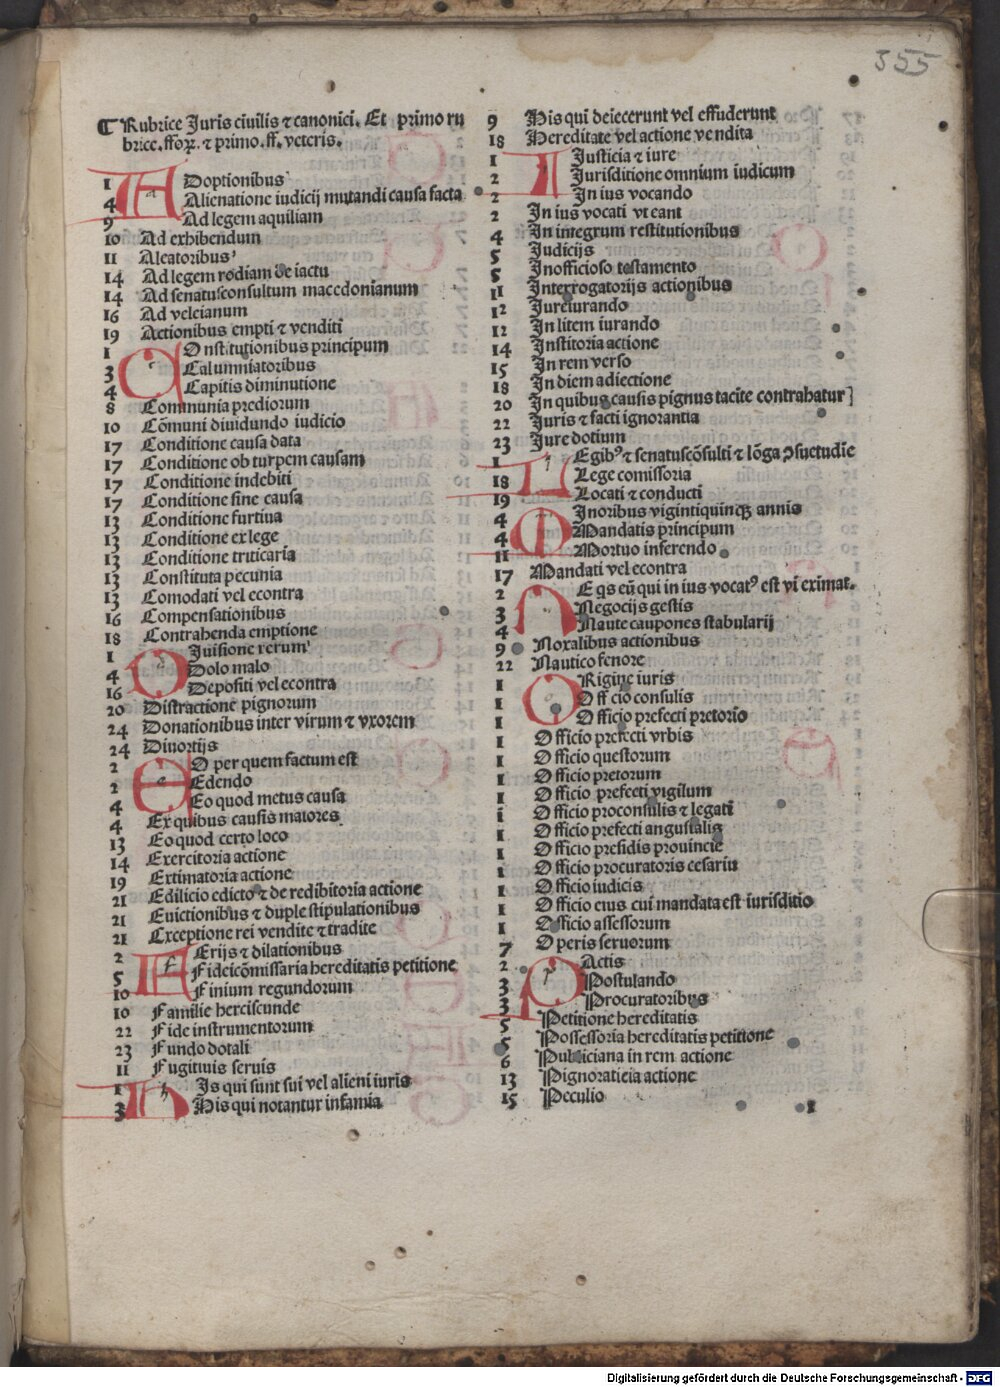 355
¶ Rubrice Juris ciuilis ⁊ canonici. Et primo ru
brice. ffoꝝ. ⁊ primo. ff. veteris.
1 A Doptionibus
4 Alienatione iudicij mutandi causa facta
9 Ad legem aquiliam
10 Ad exhibendum
11 Aleatoribus
14 Ad legem rodiam de iactu
14 Ad senatusconsultum macedonianum
16 Ad veleianum
19 Actionibus empti ⁊ venditi
1 C Onstitutionibus principum
3 Calumniatoribus
4 Capitis diminutione
8 Communia prediorum
10 Cōmuni diuidundo iudicio
17 Conditione causa data
17 Conditione ob turpem causam
17 Conditione indebiti
17 Conditione sine causa
13 Conditione furtiua
13 Conditione ex lege
13 Conditione triticaria
13 Constituta pecunia
13 Comodati vel econtra
16 Compensationibus
18 Contrahenda emptione
1 D Iuisione rerum
4 Dolo malo
16 Depositi vel econtra
20 Distractione pignorum
24 Donationibus inter virum ⁊ vxorem
24 Diuortijs
2 E O per quem factum est
2 Edendo
4 Eo quod metus causa
4 Ex quibus causis maiores
13 Eo quod certo loco
14 Exercitoria actione
19 Extimatoria actione
21 Edilicio edicto ⁊ de redibitoria actione
21 Euictionibus ⁊ duple stipulationibus
21 Exceptione rei vendite ⁊ tradite
2 F Erijs ⁊ dilationibus
5 Fideicōmissaria hereditatis petitione
10 Finium regundorum
10 Familie herciscunde
22 Fide instrumentorum
23 Fundo dotali
11 Fugitiuis seruis
1 H Is qui sunt sui vel alieni iuris
3 His qui notantur infamia
9 His qui deiecerunt vel effuderunt
18 Hereditate vel actione vendita
1 I Justicia ⁊ iure
2 Jurisditione omnium iudicum
2 In ius vocando
2 In ius vocati vt eant
4 In integrum restitutionibus
5 Judicijs
5 Inofficioso testamento
11 Interrogatorijs actionibus
12 Jureiurando
12 In litem iurando
14 Institoria actione
15 In rem verso
18 In diem adiectione
20 In quibus causis pignus tacite contrahatur]
22 Juris ⁊ facti ignorantia
23 Jure dotium
1 L Egibꝰ ⁊ senatuscōsulti ⁊ lōga ꝯsuetudīe
18 Lege comissoria
19 Locati ⁊ conducti
4 M Inoribus vigintiquinqꝫ annis
4 Mandatis principum
11 Mortuo inferendo
17 Mandati vel econtra
2 N E qs eū qui in ius vocatꝰ est vi eximat.
3 Negocijs gestis
4 Naute caupones stabularij
9 Noxalibus actionibus
22 Nautico fenore
1 O Rigine iuris
1 Officio consulis
1 Officio prefecti pretorio
1 Officio prefecti vrbis
1 Officio questorum
1 Officio pretorum
1 Officio prefecti vigilum
1 Officio proconsulis ⁊ legati
1 Officio prefecti angustalis
1 Officio presidis prouincie
1 Officio procuratoris cesaris
1 Officio iudicis
1 Officio eius cui mandata est iurisditio
1 Officio assessorum
7 Operis seruorum
2 P Actis
3 Postulando
3 Procuratoribus
5 Petitione hereditatis
5 Possessoria hereditatis petitione
6 Publiciana in rem actione
13 Pignoraticia actione
15 Peculio
1
Digitalisierung gefördert durch die Deutsche Forschungsgemeinschaft - DFG